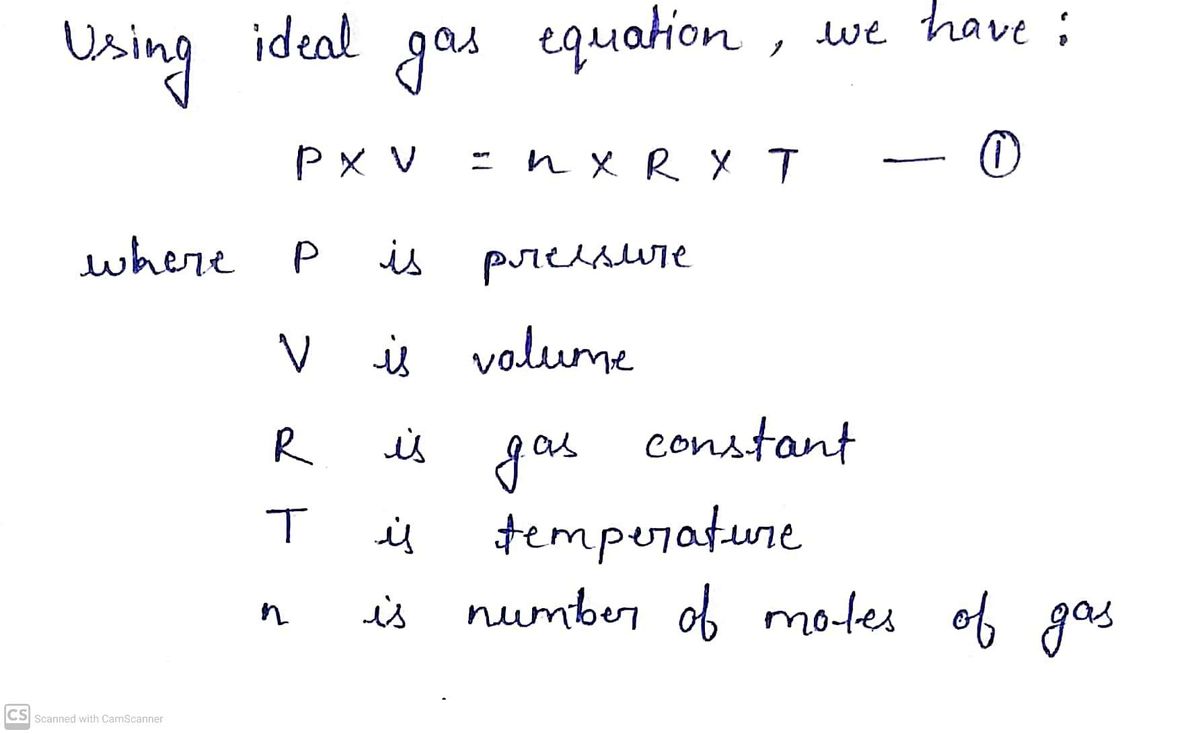 Using ideal gas equation, we have:
P x V = n x R x T — ①
where P is pressure
V is volume
R is gas constant
T is temperature
n is number of moles of gas
CS Scanned with CamScanner